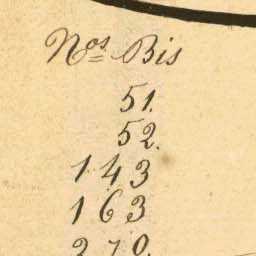 Nos Bis
51.
52.
143
163
270.